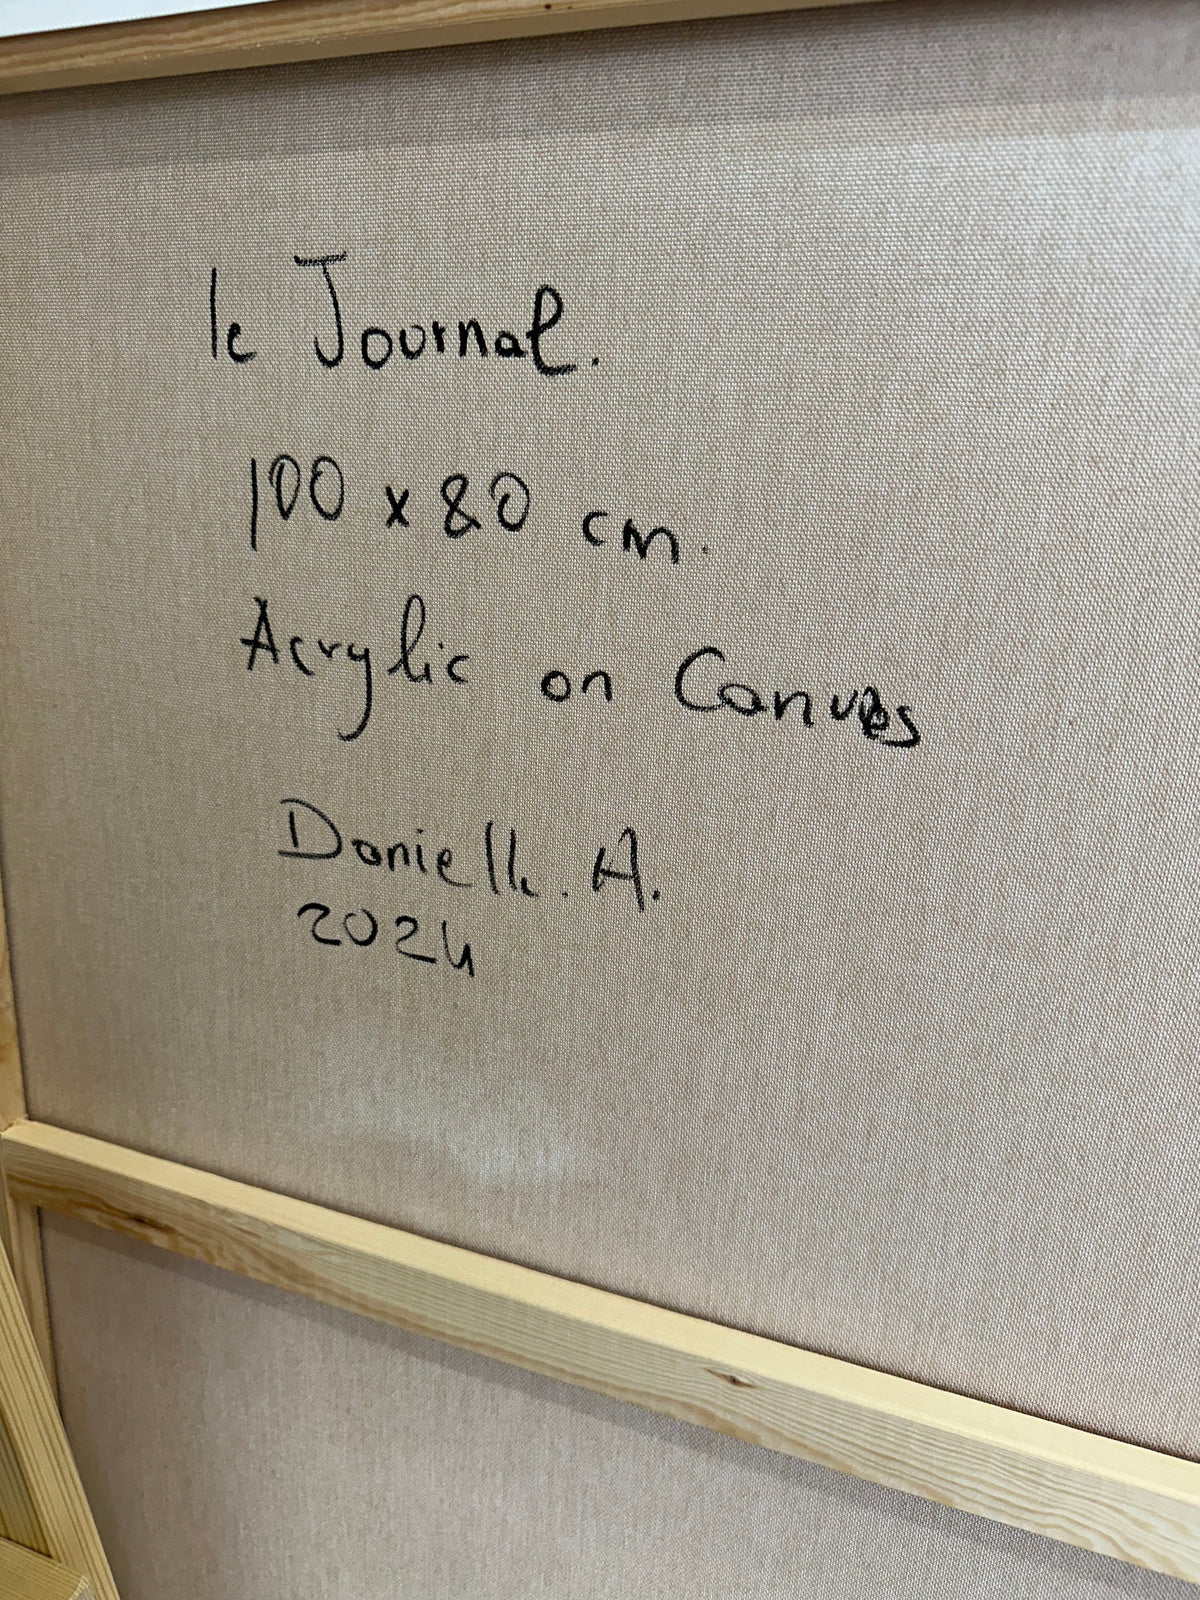 le Journal.
100 x 80 cm.
Acrylic on Canvas
Danielle. A.
2024